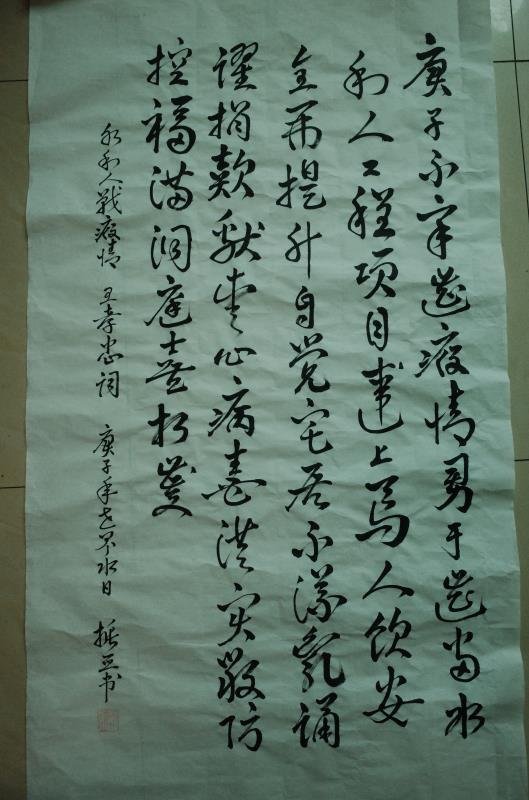 庚子不幸遊疫情勇于当水
利人工程项目建上马人饮安
全需提升自觉宅居不添乱诵
谨捐款献爱心病毒洪灾严防
控福满洞庭士
水利人战疫情 王孝忠词 庚子年世界水日 振亚书